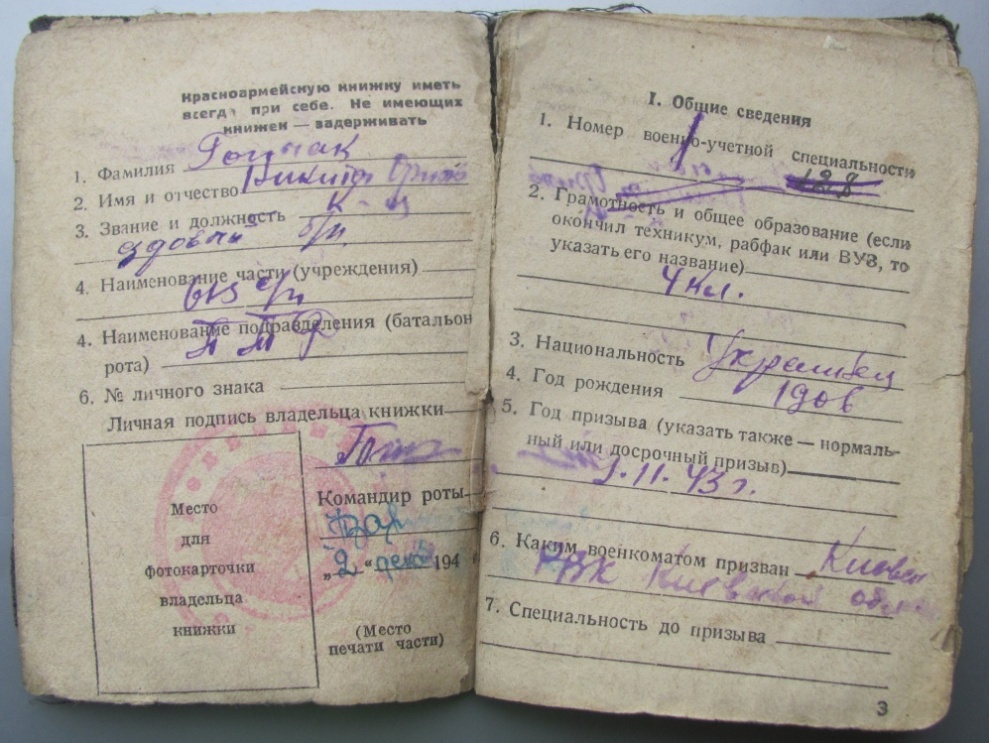 Красноармейскую книжку иметь
всегда при себе. Не имеющих
книжек — задерживать
1. Фамилия
2. Имя и отчество Никита
3. Звание и должность К-ц
ездовый
4. Наименование части (учреждения)
4. Наименование подразделения (батальон
рота)
6. № личного знака
Личная подпись владельца книжки
Место
для
фотокарточки
владельца
книжки
Командир роты
„2“ декаб 194 "
(Место
печати части)
I. Общие сведения
1. Номер военно-учетной специальности
128
2. Грамотность и общее образование (если
окончил техникум, рабфак или ВУЗ, то
указать его название)
4 кл.
3. Национальность Украинец
4. Год рождения 1906
5. Год призыва (указать также — нормаль-
ный или досрочный призыв)
11.43 г.
6. Каким военкоматом призван
РВК Киевской обл
7. Специальность до призыва
3